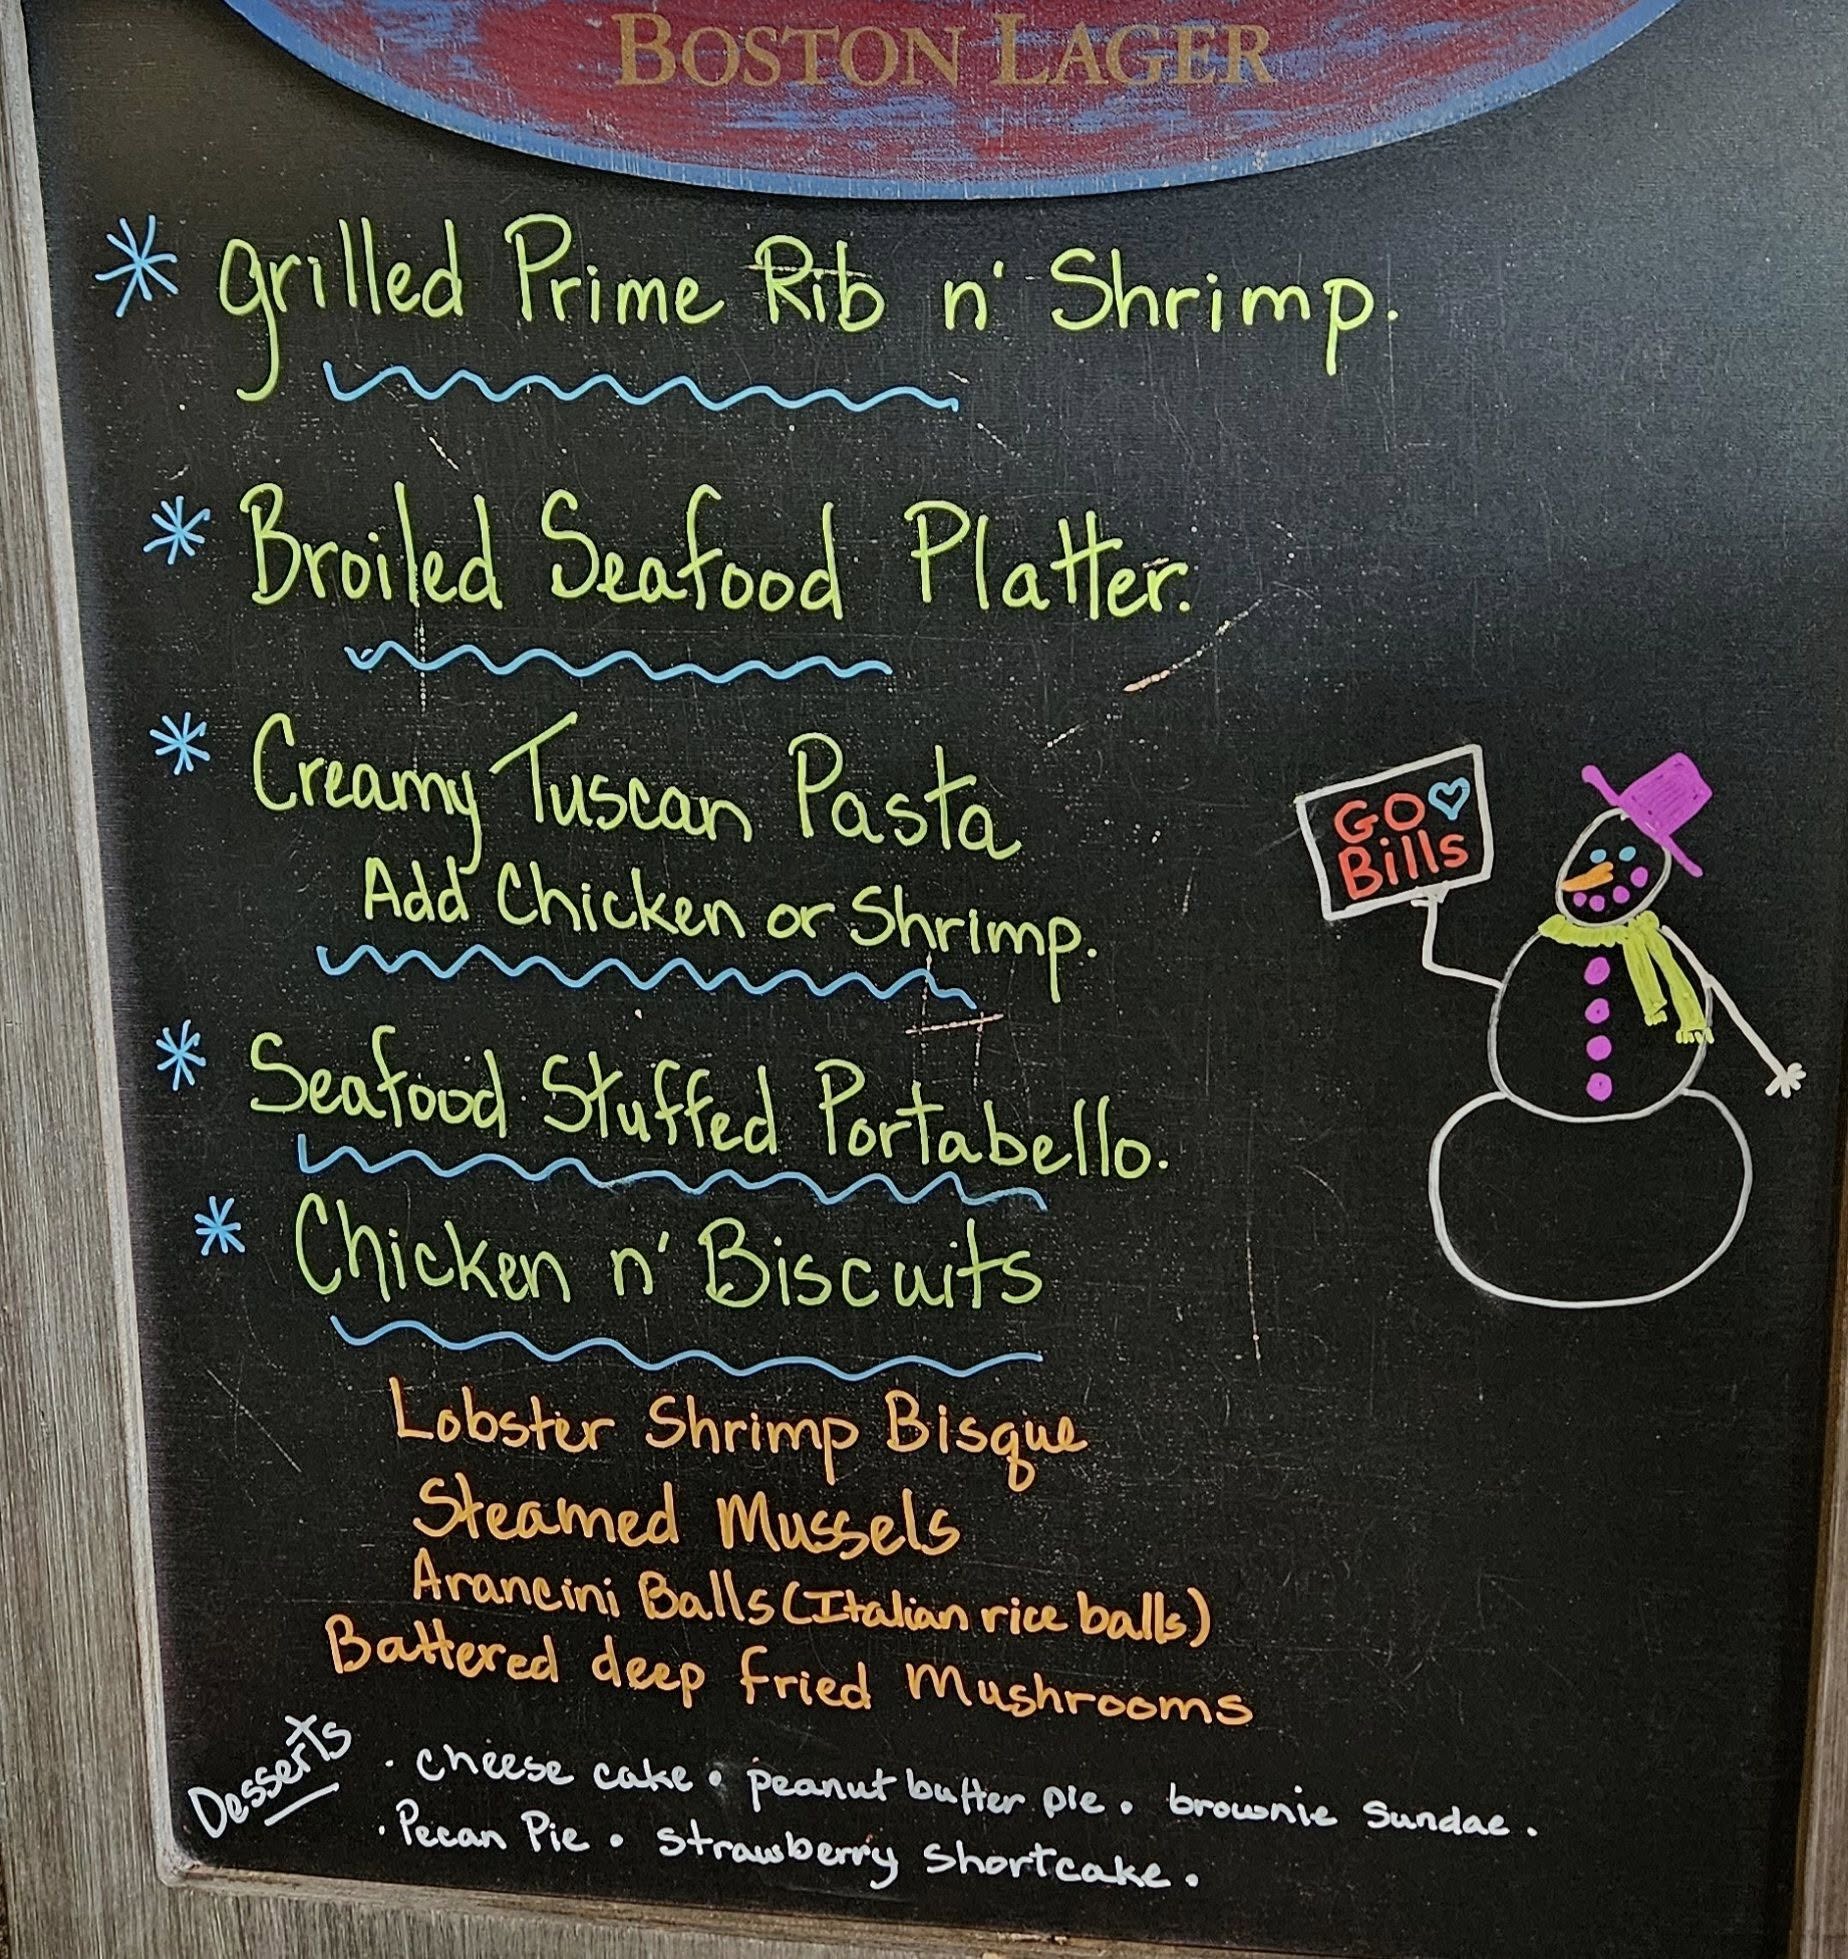 BOSTON LAGER
* Grilled Prime Rib n' Shrimp.
* Broiled Seafood Platter.
* Creamy Tuscan Pasta
Add Chicken or Shrimp.
GO ♡
Bills
* Seafood Stuffed Portabello.
* Chicken n' Biscuits
Lobster Shrimp Bisque
Steamed Mussels
Arancini Balls (Italian rice balls)
Battered deep fried Mushrooms
Desserts
· cheese cake • peanut butter pie. • brownie Sundae.
· Pecan Pie • Strawberry Shortcake.